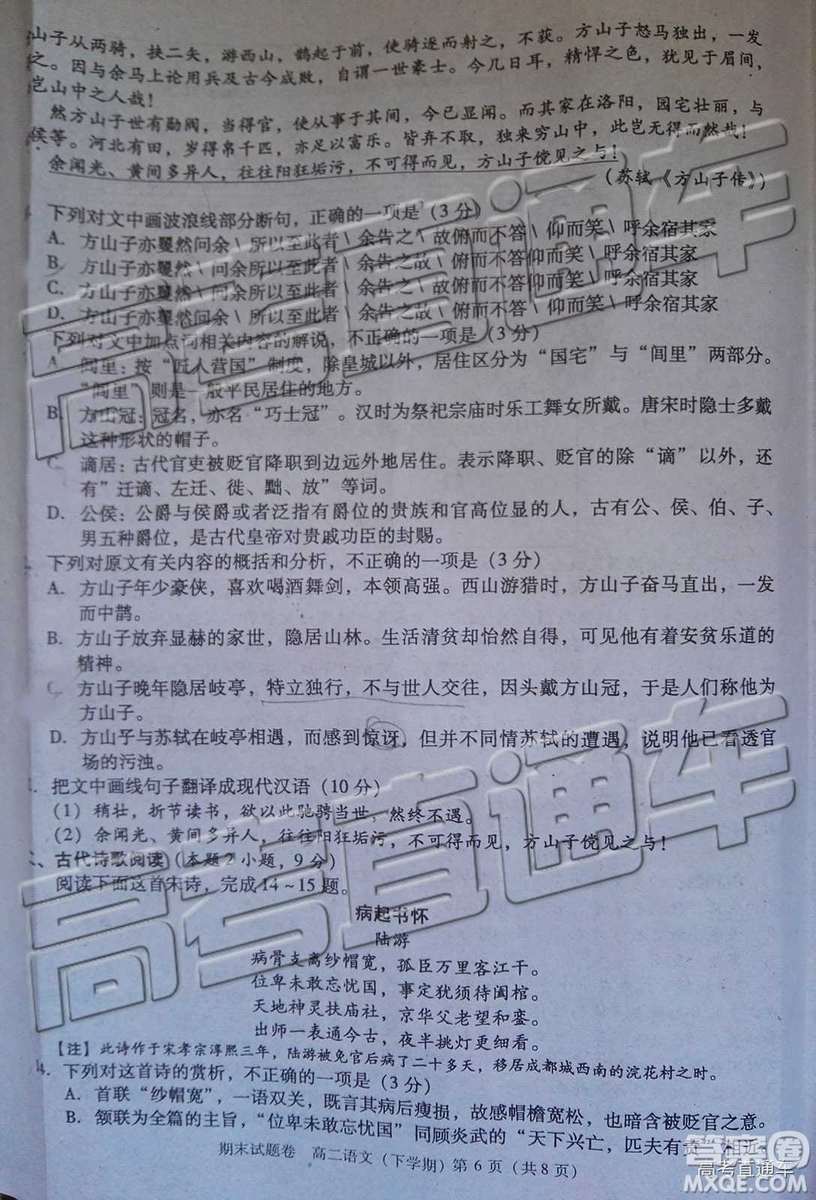 山子从两骑，挟二矢，游西山，鹊起于前，使骑逐而射之，不获。方山子怒马独出，一发
之。因与余马上论用兵及古今成败，自谓一世豪士。今几日耳，精悍之色，犹见于眉间，
岂山中之人哉！
然方山子世有勋阀，当得官，使从事于其间，今已显闻。而其家在洛阳，园宅壮丽，与
侯等。河北有田，岁得帛千匹，亦足以富乐。皆弃不取，独来穷山中，此岂无得而然哉！
余闻光、黄间多异人，往往阳狂垢污，不可得而见，方山子傥见之与！
（苏轼《方山子传》）
下列对文中画波浪线部分断句，正确的一项是（3 分）
A. 方山子亦矍然问余\所以至此者\余告之\故俯而不答\仰而笑\呼余宿其家
B. 方山子亦矍然\问余所以至此者\余告之故\俯而不答\仰而笑\呼余宿其家
C. 方山子亦矍然\问余所以至此者\余告之\故俯而不答\仰而笑\呼余宿其家
D. 方山子亦矍然问余\所以至此者\余告之故\俯而不答\仰而笑\呼余宿其家
下列对文中加点词相关内容的解说，不正确的一项是（3 分）
A. 闾里：按“匠人营国”制度，除皇城以外，居住区分为“国宅”与“闾里”两部分。
“闾里”则是一般平民居住的地方。
B. 方山冠：冠名，亦名“巧士冠”。汉时为祭祀宗庙时乐工舞女所戴。唐宋时隐士多戴
这种形状的帽子。
C. 谪居：古代官吏被贬官降职到边远外地居住。表示降职、贬官的除“谪”以外，还
有“迁谪、左迁、徙、黜、放”等词。
D. 公侯：公爵与侯爵或者泛指有爵位的贵族和官高位显的人，古有公、侯、伯、子、
男五种爵位，是古代皇帝对贵戚功臣的封赐。
下列对原文有关内容的概括和分析，不正确的一项是（3 分）
A. 方山子年少豪侠，喜欢喝酒舞剑，本领高强。西山游猎时，方山子奋马直出，一发
而中鹊。
B. 方山子放弃显赫的家世，隐居山林。生活清贫却怡然自得，可见他有着安贫乐道的
精神。
C. 方山子晚年隐居岐亭，特立独行，不与世人交往，因头戴方山冠，于是人们称他为
方山子。
D. 方山子与苏轼在岐亭相遇，而感到惊讶，但并不同情苏轼的遭遇，说明他已看透官
场的污浊。
把文中画线句子翻译成现代汉语（10 分）
（1）稍壮，折节读书，欲以此驰骋当世，然终不遇。
（2）余闻光、黄间多异人，往往阳狂垢污，不可得而见，方山子傥见之与！
、古代诗歌阅读（本题2 小题，9 分）
阅读下面这首宋诗，完成14～15题。
病起书怀
陆游
病骨支离纱帽宽，孤臣万里客江干。
位卑未敢忘忧国，事定犹须待阖棺。
天地神灵扶庙社，京华父老望和銮。
出师一表通今古，夜半挑灯更细看。
【注】此诗作于宋孝宗淳熙三年，陆游被免官后病了二十多天，移居成都城西南的浣花村之时。
4. 下列对这首诗的赏析，不正确的一项是（3 分）
A. 首联“纱帽宽”，一语双关，既言其病后瘦损，故感帽檐宽松，也暗含被贬官之意。
B. 颔联为全篇的主旨，“位卑未敢忘忧国”同顾炎武的“天下兴亡，匹夫有责”相近，
期末试题卷 高二语文（下学期）第 6 页（共 8 页）
高考直通车
高考直通车
高考直通车
答案圈
MXQE.COM
高考直通车